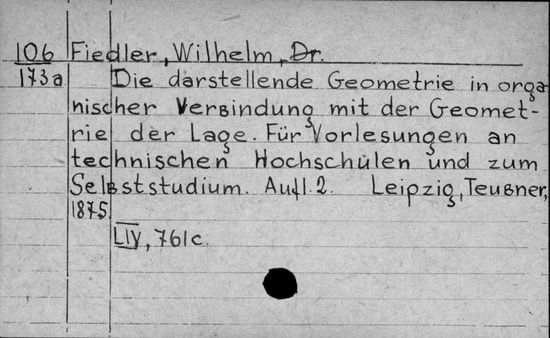 106 Fiedler, Wilhelm, Dr.
173a Die darstellende Geometrie in orga-
nischer Verbindung mit der Geomet-
rie der Lage. Für Vorlesungen an
technischen Hochschulen und zum
Selbststudium. Aufl. 2. Leipzig, Teubner,
1875.
LIV, 761c.